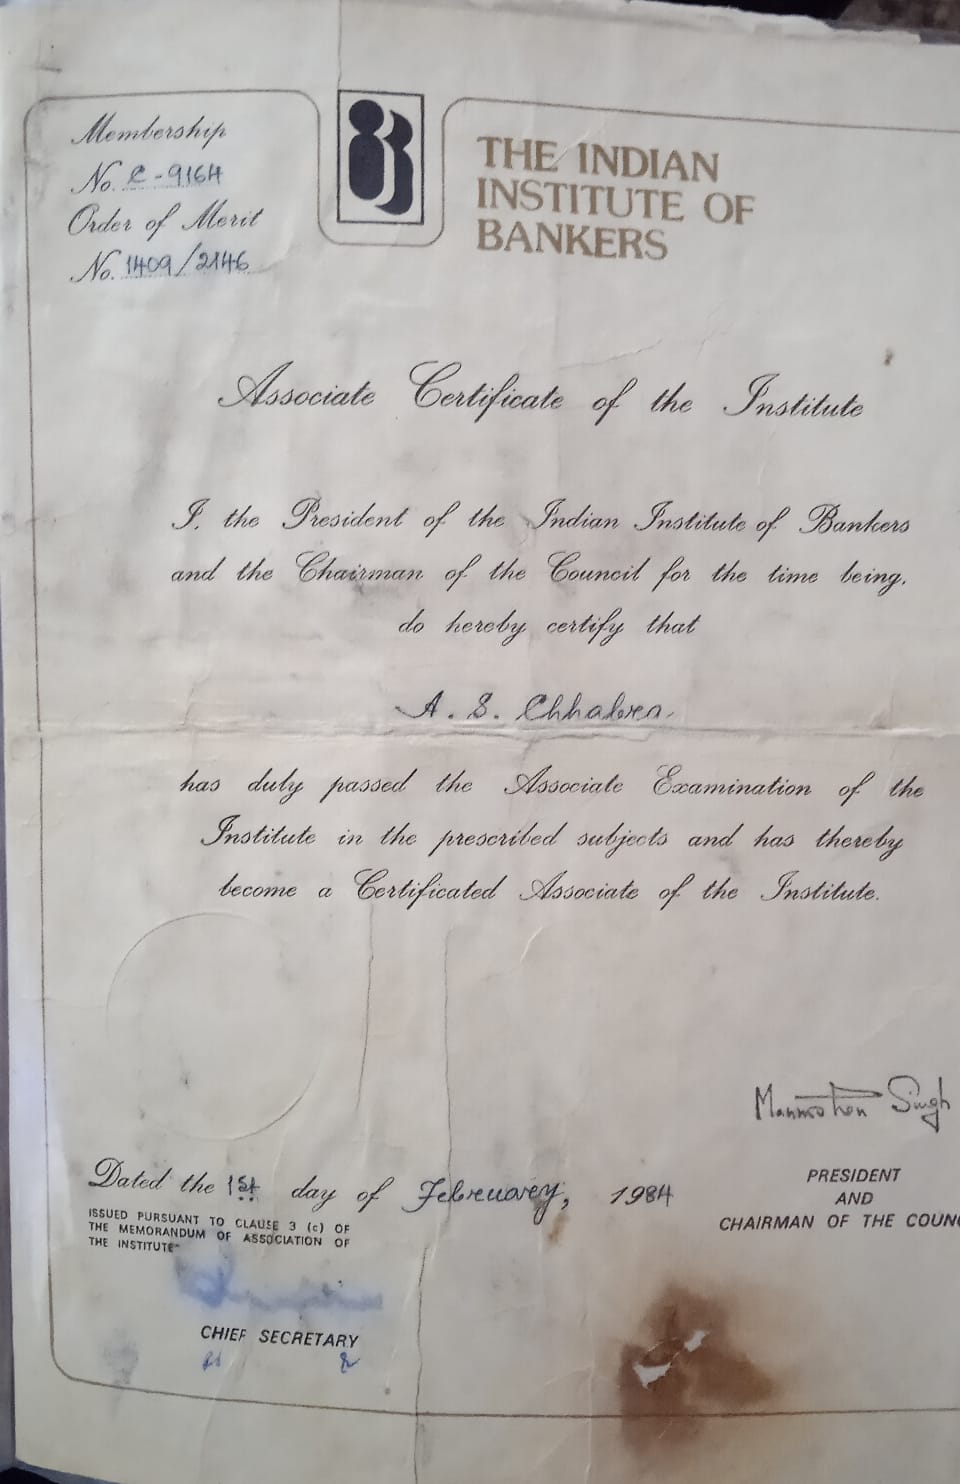 Membership
No. C-9164
Order of Merit
No. 1409/2146
THE INDIAN
INSTITUTE OF
BANKERS
Associate Certificate of the Institute
I, the President of the Indian Institute of Bankers
and the Chairman of the Council for the time being,
do hereby certify that
A. S. Chhabra
has duly passed the Associate Examination of the
Institute in the prescribed subjects and has thereby
become a Certificated Associate of the Institute.
Manmohan Singh
Dated the 1st day of February, 1984
PRESIDENT
AND
CHAIRMAN OF THE COUNC
ISSUED PURSUANT TO CLAUSE 3 (c) OF
THE MEMORANDUM OF ASSOCIATION OF
THE INSTITUTE
CHIEF SECRETARY